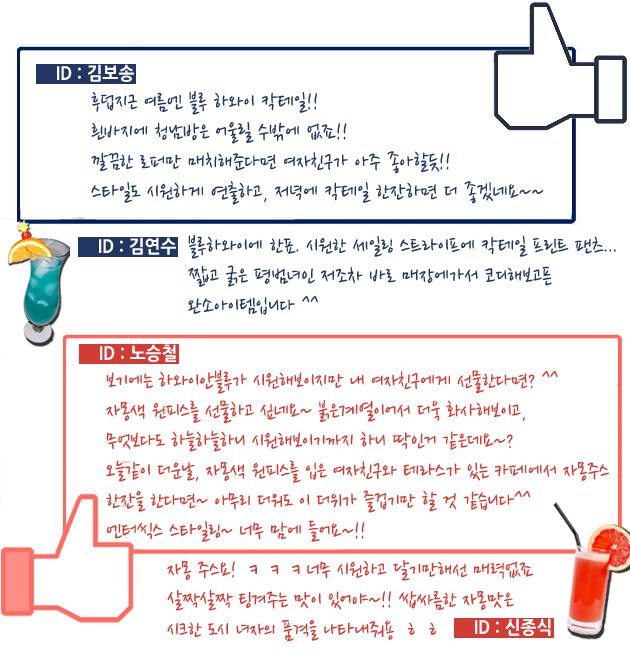 ID : 김보송
후덥지근 여름엔 블루 하와이 칵테일!!
흰바지에 청남방은 어울릴 수밖에 없죠!!
깔끔한 로퍼만 매치해준다면 여자친구가 아주 좋아할듯!!
스타일도 시원하게 연출하고, 저녁에 칵테일 한잔하면 더 좋겠네요~~
ID : 김연수 블루하와이에 한표. 시원한 세일링 스트라이프에 칵테일 프린트 팬츠...
짧고 굵은 평범녀인 저조차 바로 매장에가서 코디해보고픈
완소아이템입니다 ^^
ID : 노승철
보기에는 하와이안블루가 시원해보이지만 내 여자친구에게 선물한다면? ^^
자몽색 원피스를 선물하고 싶네요~ 붉은계열이어서 더욱 화사해보이고,
무엇보다도 하늘하늘하니 시원해보이기까지 하니 딱인거 같은데요~?
오늘같이 더운날, 자몽색 원피스를 입은 여자친구와 테라스가 있는 카페에서 자몽주스
한잔을 한다면~ 아무리 더워도 이 더위가 즐겁기만 할 것 같습니다^^
엔터식스 스타일링~ 너무 맘에 들어요~!!
자몽 주스요! ㅋ ㅋ ㅋ 너무 시원하고 달기만해선 매력없죠
살짝살짝 팅겨주는 맛이 있어야~!! 쌉싸름한 자몽맛은
시크한 도시 녀자의 품격을 나타내줘용 ㅎ ㅎ ID : 신종식